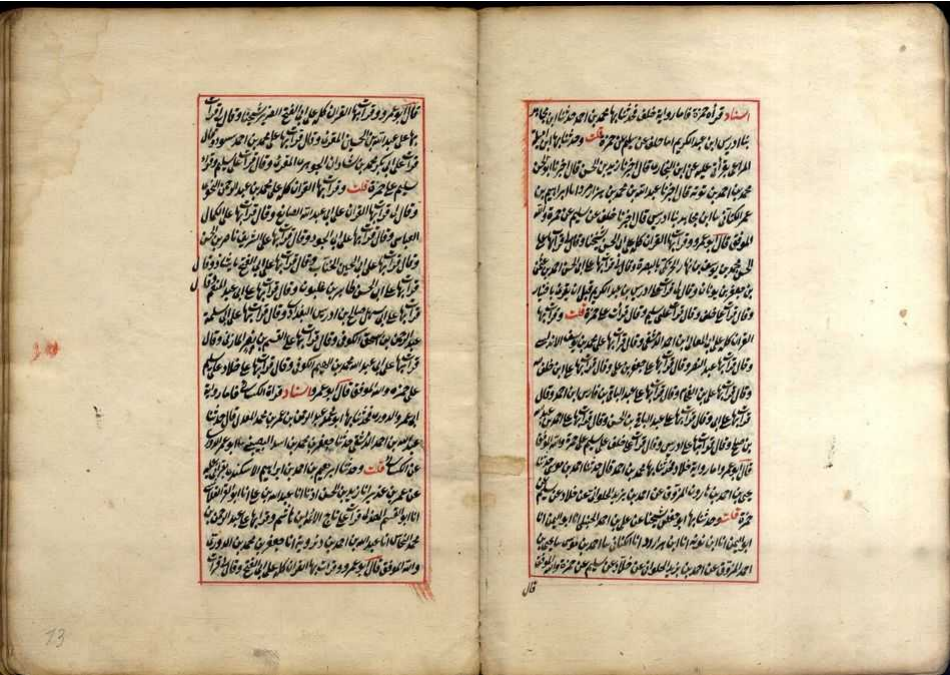 اسناد قراءة حمزة فاما رواية خلف فحدثنا بها محمد بن احمد حدثنا ابن مجاهد
ثنا ادريس ابن عبد الكريم اما خلف عن سليم عن حمزة قلت وحدثنا بها
المراغي بقرأتي عليه عن ابن البخاري قال اخبرنا زيد بن الحسن قال اخبرنا
محمد بن احمد بن توبة قال اخبرنا عبد الله بن محمد بن هزارمرد اما ابراهيم بن
عمر الكتاني نا ابن مجاهد نا ادريس قال اخبرنا خلف عن سليم عن حمزة والله
الموفق قال ابو عمرو وقرات بها القران كله على ابي الحسن شيخنا وقال لي قرات بها على
محمد بن يوسف بن نهار الحرتكي بالبصرة وقال لي قرات بها على ابي الحسن احمد بن عثمن
بن جعفر بن بويان وقال لي قرات على ادريس بن عبد الكريم قبل ان يقرئ باختيار
وقال قرات على خلف وقال قرات على سليم وقال قرات على حمزة قلت وقرات بها
القران كله على ابي المعالي ابن احمد الدمشقي وقال قرات بها على ابن يوسف الاندلسي
وقال قرات بها على جعفر بن علي وقال قرات بها على ابن خلف
وقال قرات بها على عبد الباقي بن فارس بن احمد وقال
قرات بها على ابي وقال قرات بها على عبد الباقي بن الحسن وقال قرات بها على احمد بن عبد
وقال قرات بها على ادريس وقال قرات على خلف على سليم على حمزة والله الموفق
قال ابو عمرو واما رواية خلاد فحدثنا بها محمد بن احمد قال حدثنا احمد بن موسى حدثنا
يحيى بن احمد بن هارون المزوق عن احمد بن يزيد الحلواني عن خلاد عن سليم
حمزة قلت وحدثنا بها ابو حفص شيخنا عن علي بن احمد الحنبلي انا ابو اليمن انا
ابو اليمن انا ابن توبة انا ابن هزارمرد انا الكتاني نا احمد بن موسى نا يحيى بن
احمد المزوق عن احمد بن يزيد الحلواني عن خلاد عن سليم عن حمزة والله الموفق
قال
قال ابو عمرو وقرات بها القران كله على ابي الفتح الضرير شيخنا وقال لي قرات
بها على عبد الله بن الحسين المقرئ وقال قرات بها على محمد بن احمد بن شنبوذ وقال
قرات على ابي بكر محمد بن شاذان الجوهري المقرئ وقال قرات على خلاد وقرأ على
سليم على حمزة قلت وقرات بها القران كله على محمد بن عبد الرحمن النحوي
وقال لي قرات بها القران على ابي عبد الله الصايغ وقال قرات بها على الكمال
العباسي وقال قرات بها على ابي الجود وقال قرات بها على الشريف ناصر بن الحسن
وقال قرات بها على ابي الحسين الخشاب وقال قرات بها على ابي الفتح بابشاذ وقال
قرات بها على ابي الحسن طاهر بن غلبون وقال قرات بها على ابي عبد المنعم وقال
قرات بها على ابي سهل صالح بن ادريس البغدادي وقال قرات بها على ابي سلمة
عبد الرحمن بن اسحق الكوفي وقال قرات بها على القسم بن نصر المازني وقال
قرات بها على ابي عبد الله محمد بن الهيثم الكوفي وقال قرات بها على خلاد على سليم
على حمزة والله الموفق قال ابو عمرو اسناد قراة الكسائي فاما رواية
ابي عمر الدوري فحدثنا بها ابو محمد عبد الرحمن بن عمر بن محمد المعدل قال حدثنا
عبد الله بن احمد الدمشقي حدثنا جعفر بن محمد بن اسد النصيبي نا ابو عمر الدوري
عن الكسائي قلت وحدثنا ابرهيم بن احمد بن ابراهيم الاسكندري بقراتي عليه
عن عمر بن غدير انا زيد بن الحسن اذنا انا عبد الله بن علي انا ابو
انا ابو القسم قرات على تاج الائمة بن هاشم وقرا بها على عبد الرحمن بن
محمد النحاس انا عبد الله بن احمد بن ذيزويه انا جعفر بن محمد بن الدوري
والله الموفق قال ابو عمرو وقرات بها القران كله على ابي الفتح وقال لي قرات
13